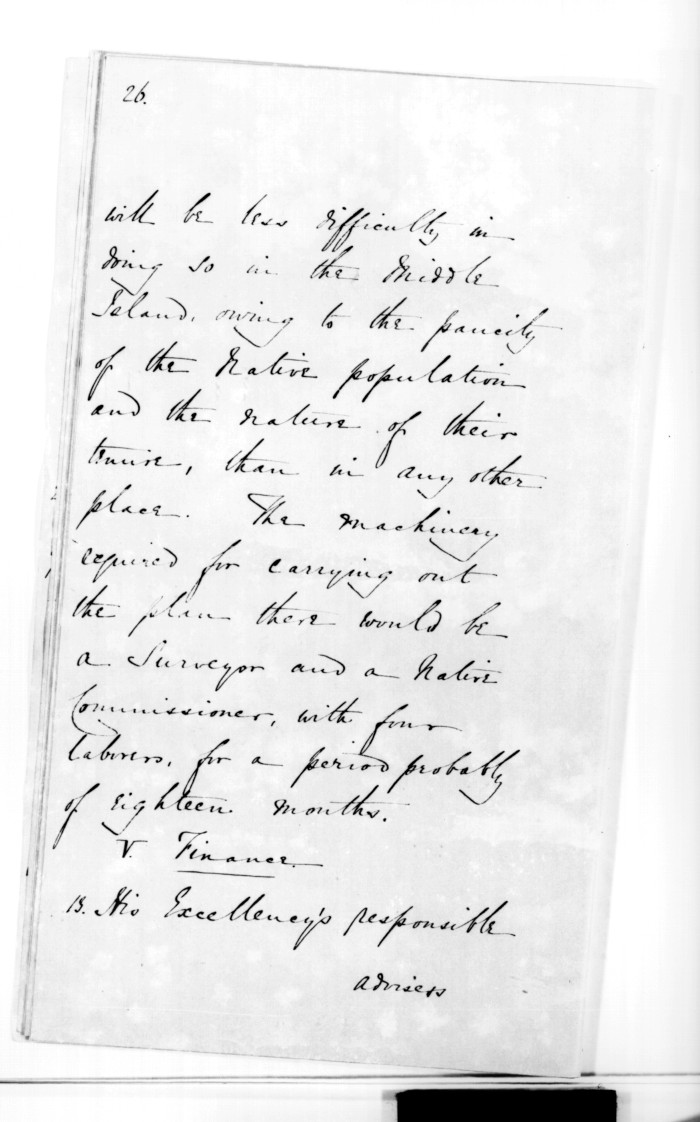 26.
will be less difficulty in
doing so in the Middle
Island, owing to the paucity
of the Native population
and the nature of their
tenure, than in any other
place. The machinery
required for carrying out
the plan there would be
a Surveyor and a Native
Commissioner, with four
laborers, for a period probably
of eighteen months.
V. Finance.
13. His Excellency's responsible
advisers